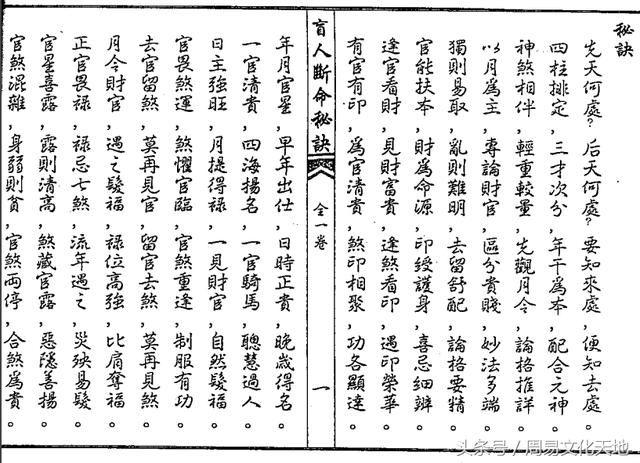 秘訣
先天何處?后天何處?要知來處,便知去處。
四柱排定,三才次分,年干為本,配合元神。
神煞相伴,輕重較量,先觀月令,論格推詳。
以月為主,專論財官,區分貴賤,妙法多端。
獨則易取,亂則難明,去留舒配,論格要精。
官能扶本,財為命源,印綬護身,喜忌細辨。
逢官看財,見財富貴,逢煞看印,遇印榮華。
有官有印,為官清貴,煞印相聚,功各顯達。
盲人斷命秘訣 全一卷 一
年月官星,早年出仕,日時正貴,晚歲得名。
一官清貴,四海揚名,一官騎馬,聰慧過人。
日主強旺,月提得祿,一見財官,自然發福。
官畏煞運,煞懼官臨,官煞重逢,制服有功。
去官留煞,莫再見官,留官去煞,莫再見煞。
月令財官,遇之發福,祿位高強,比肩奪福。
正官畏祿,祿忌七煞,流年遇之,災殃易發。
官星喜露,露則清高,煞藏官露,惡隱善揚。
官煞混雜,身弱則貧,官煞兩停,合煞為貴。
头条号 / 周易文化天地